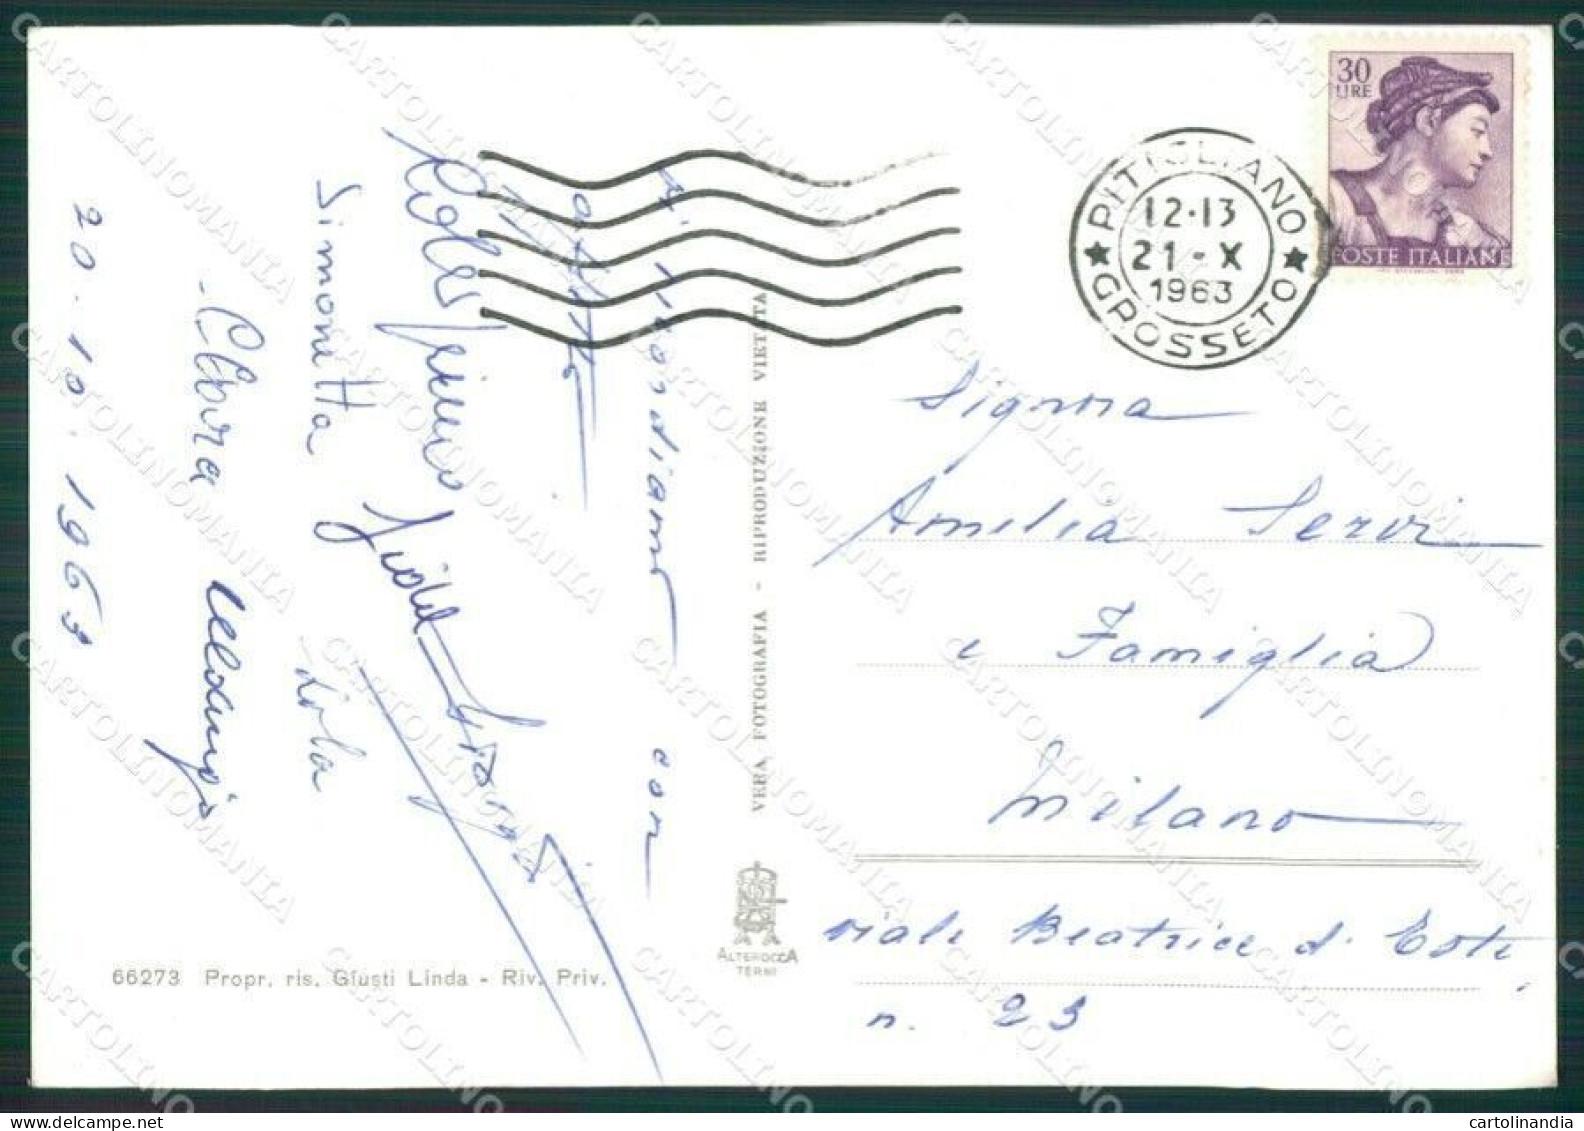 30
LIRE
POSTE ITALIANE
PITIGLIANO
12-13
21-X
1963
★ GROSSETO ★
Signora
Amelia Servi
e Famiglia
Milano
viale Beatrice d'Este
n. 23
Vi ricordiamo con
affetto
Simonetta
Lola
Clara
20.10.1963
VERA FOTOGRAFIA - RIPRODUZIONE VIETATA
ALTEROCCA
TERNI
66273 Propr. ris. Giusti Linda - Riv. Priv.
CARTOLINOMANIA
cartolinandia